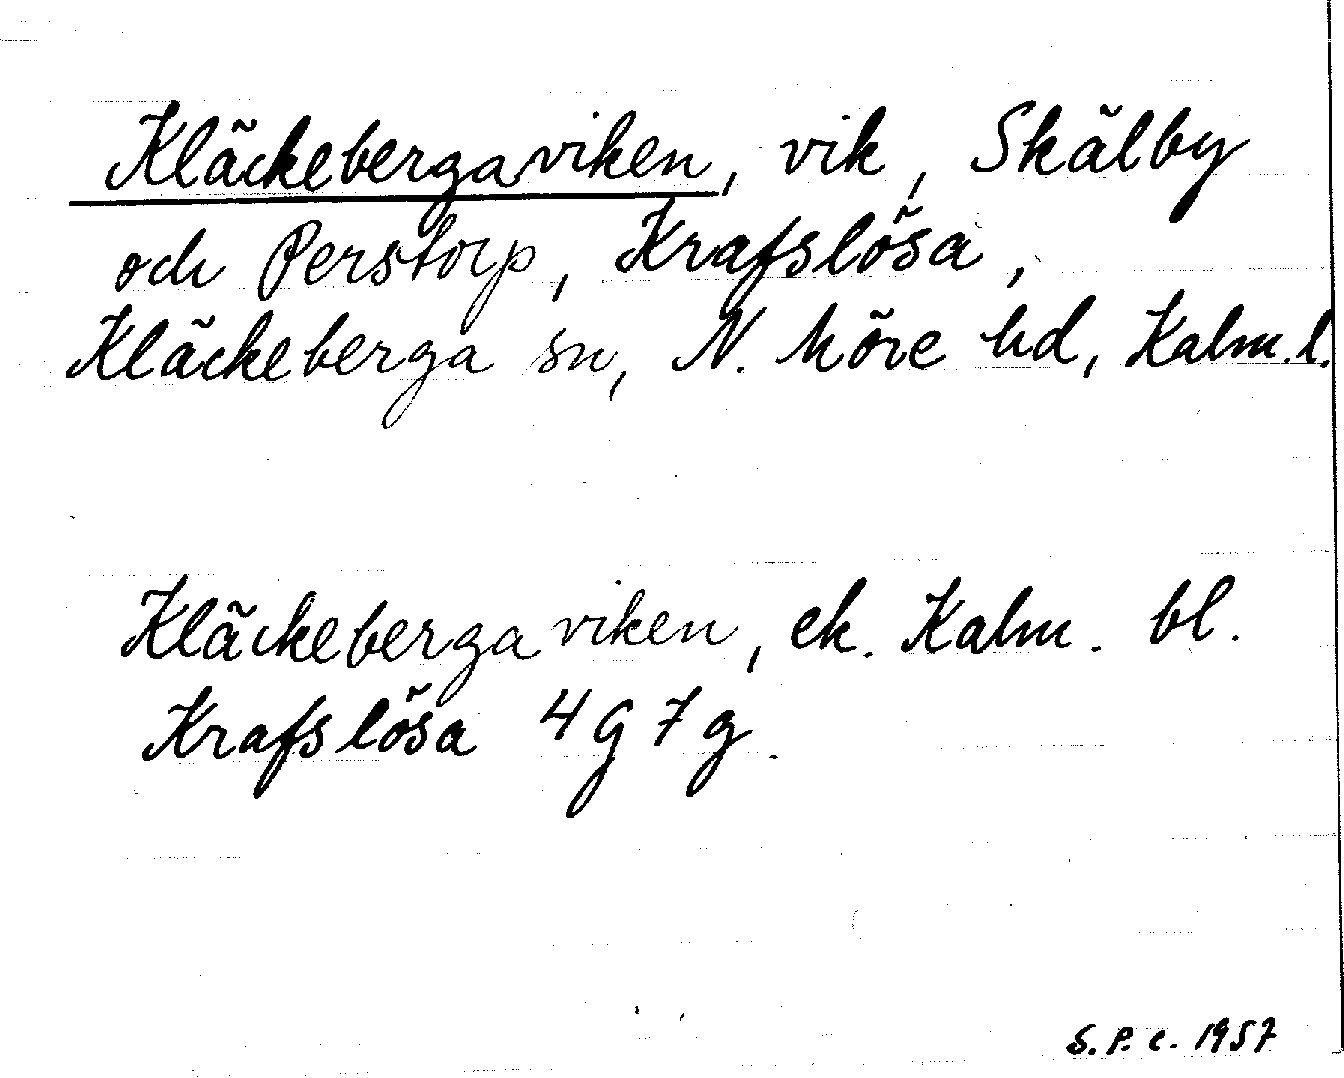 Kläckebergaviken, vik, Skälby
och Perstorp, Krafslösa,
Kläckeberga sn, N. Möre hd, Kalm. l.
Kläckebergaviken, ek. Kalm. bl.
Krafslösa 4G7g.
S. P. C. 1957